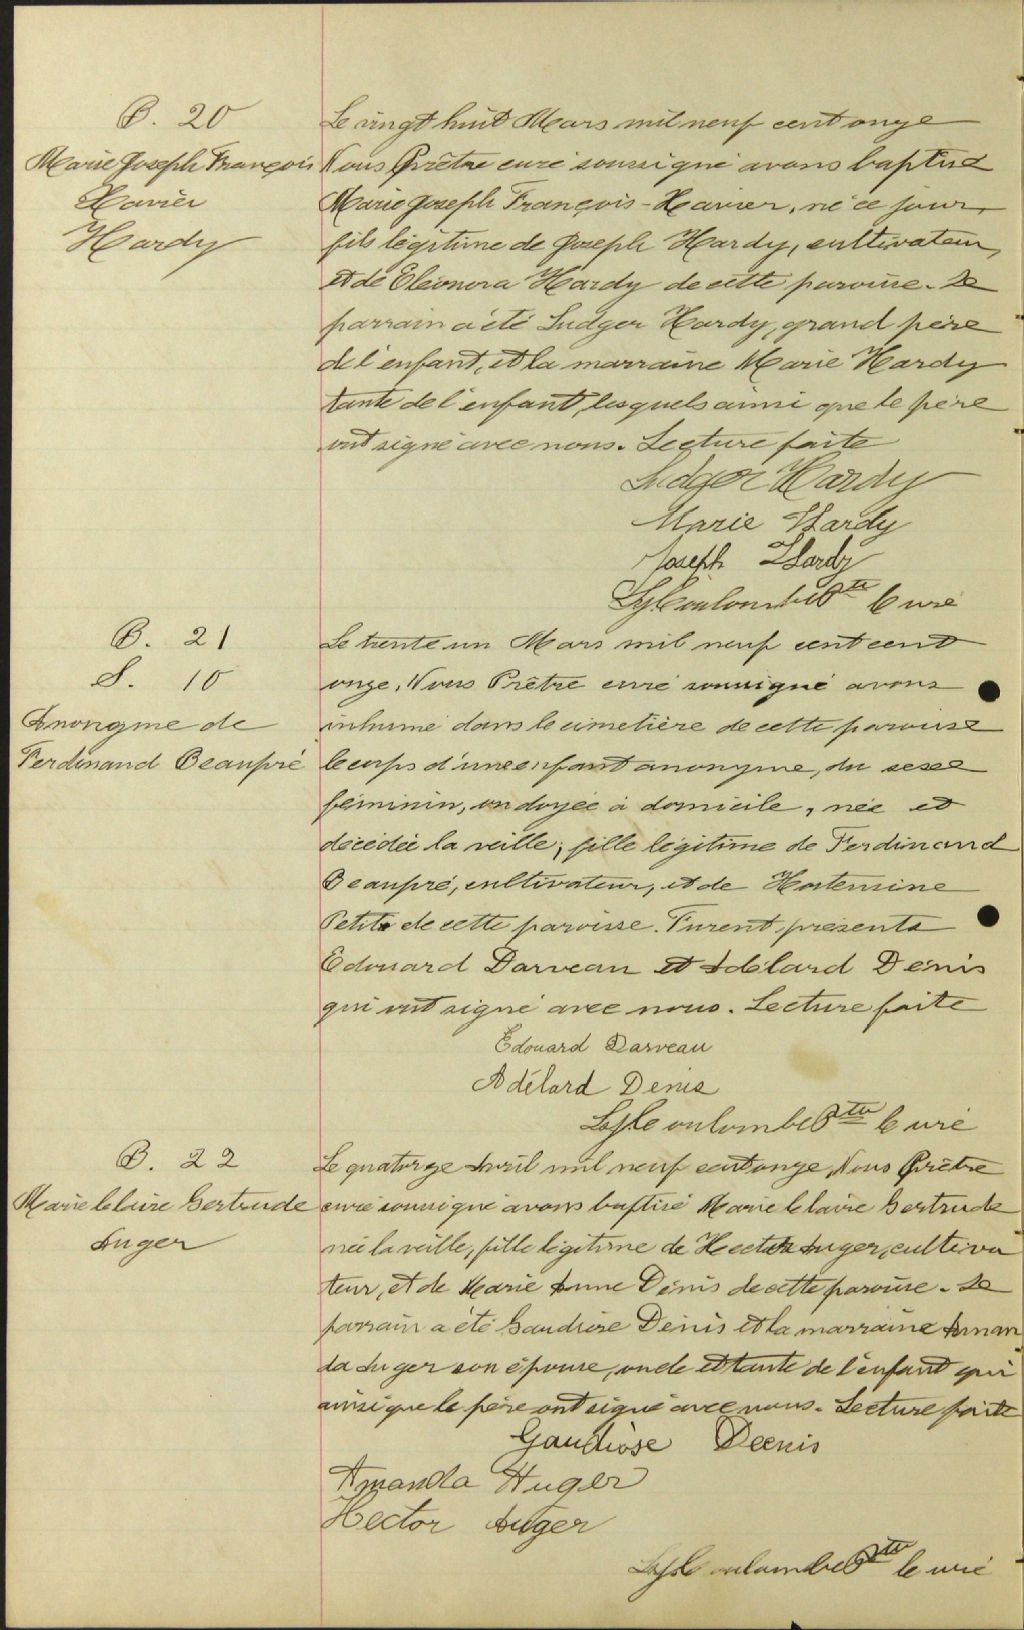 B. 20
Marie Joseph François
Xavier
Hardy
Le vingt huit Mars mil neuf cent onze
Nous Prêtre curé soussigné avons baptisé
Marie Joseph François-Xavier, né ce jour,
fils légitime de Joseph Hardy, cultivateur,
et de Eléonora Hardy de cette paroisse. Le
parrain a été Ludger Hardy, grand père
de l'enfant, et la marraine Marie Hardy
tante de l'enfant, lesquels ainsi que le père
ont signé avec nous. Lecture faite
Ludger Hardy
Marie Hardy
Joseph Hardy
Coulombe Ptre Curé
B. 21
S. 10
Anonyme de
Ferdinand Beaupré
Le trente un Mars mil neuf cent cent
onze, Nous Prêtre curé soussigné avons
inhumé dans le cimetière de cette paroisse
le corps d'une enfant anonyme, du sexe
féminin, ondoyée à domicile, née et
décédée la veille, fille légitime de Ferdinand
Beaupré, cultivateur, et de
Petit de cette paroisse. Furent présents
Edouard Darveau et Adélard Denis
qui ont signé avec nous. Lecture faite
Edouard Darveau
Adélard Denis
Coulombe Ptre Curé
B. 22
Marie Claire Gertrude
Auger
Le quatorze Avril mil neuf cent onze, Nous Prêtre
curé soussigné avons baptisé Marie Claire Gertrude
née la veille, fille légitime de Hector Auger, cultiva
teur, et de Marie Anne Denis de cette paroisse. Le
parrain a été Gaudiose Denis et la marraine Aman
da Auger son épouse, oncle et tante de l'enfant qui
ainsi que le père ont signé avec nous. Lecture faite
Gaudiose Denis
Amanda Auger
Hector Auger
Coulombe Ptre Curé